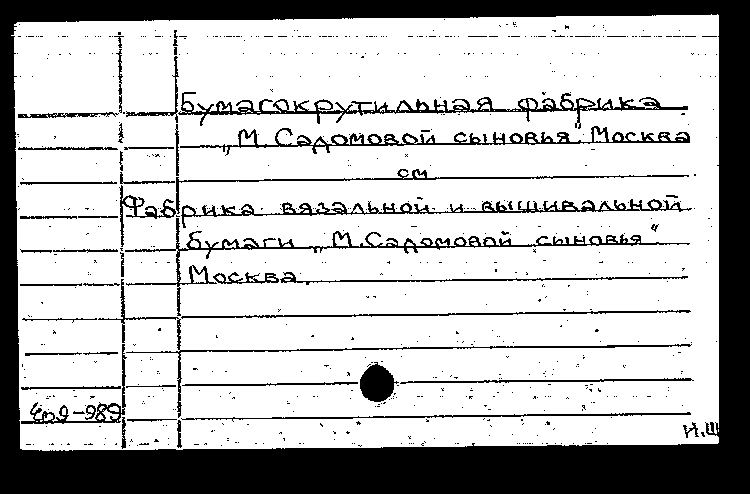 Бумагокрутильная фабрика
„М. Садомовой сыновья" Москва
см
Фабрика вязальной и вышивальной
бумаги „М. Садомовой сыновья"
Москва.
409-989
И.Ш